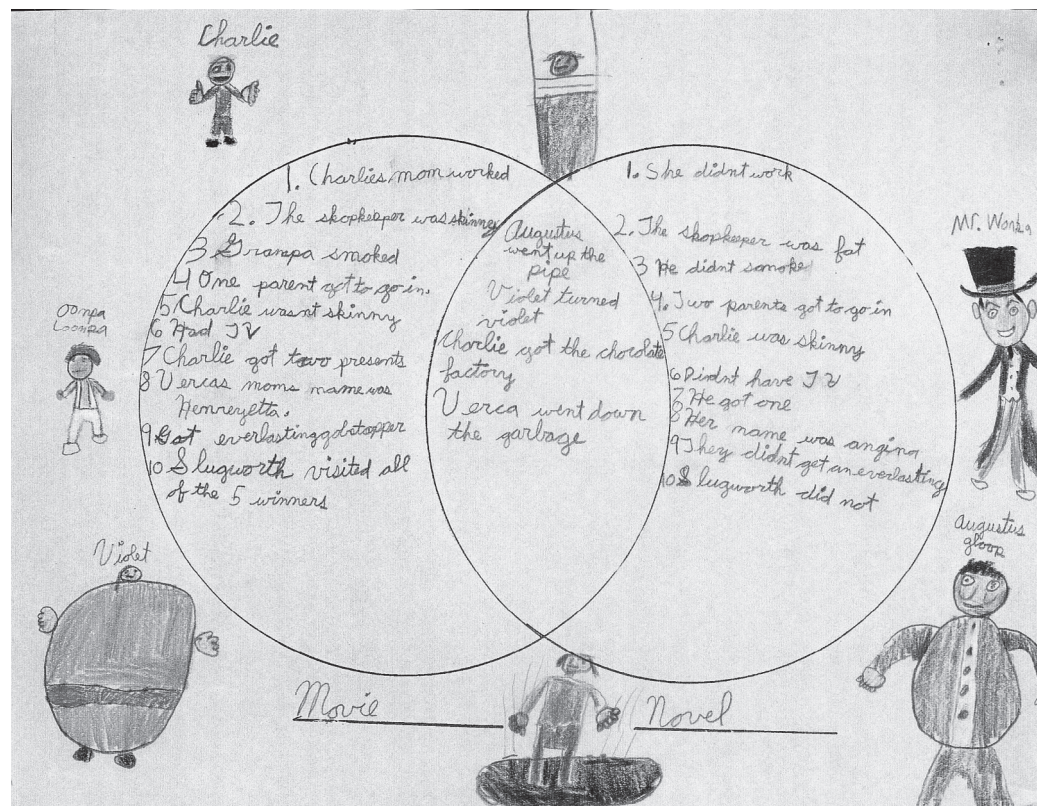 Charlie
1. Charlies mom worked
2. The skopkeeper was skinney
3 Grampa smoked
4 One parent got to go in.
5 Charlie wasnt skinny
6 Had TV
7 Charlie got two presents
8 Vercas moms mame was
Henreyetta.
9 Got everlasting gobstopper
10 Slugworth visited all
of the 5 winners
Augustus
went up the
pipe
Violet turned
violet
Charlie got the chocolate
factory
Verca went down
the garbage
1. She didnt work
2. The skopkeeper was fat
3 He didnt smoke
4. Two parents got to go in
5 Charlie was skinny
6 Didnt have TV
7 He got one
8 Her name was angina
9 They didnt get an everlasting
10 Slugworth did not
Mr. Wonka
Oonpa
Loonpa
Violet
Augustus
gloop
Movie
Novel